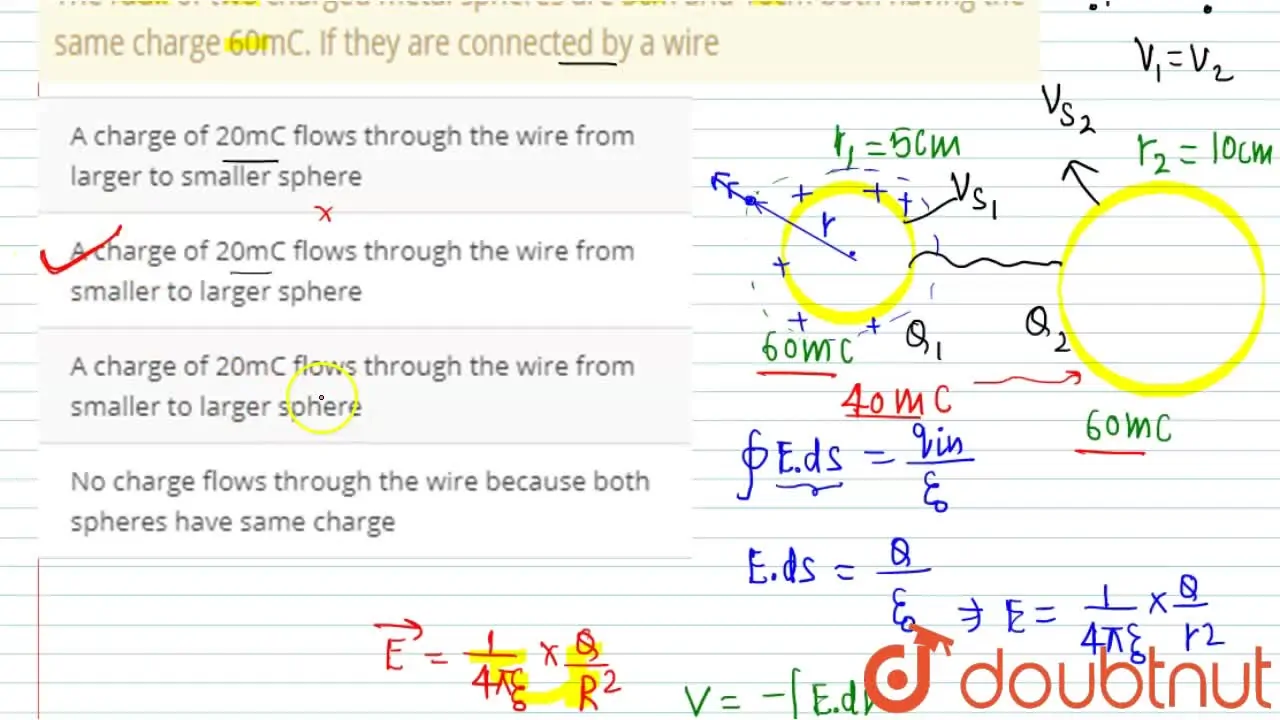 The radii of two charged metal spheres are 5cm and 10cm both having the
same charge 60mC. If they are connected by a wire
A charge of 20mC flows through the wire from
larger to smaller sphere
x
A charge of 20mC flows through the wire from
smaller to larger sphere
A charge of 20mC flows through the wire from
smaller to larger sphere
No charge flows through the wire because both
spheres have same charge
V1 = V2
VS2
r1 = 5cm
r2 = 10cm
VS1
r
+ + + + + +
60mC
Q1
Q2
40mC
60mC
∮E.ds = qin/ε0
E.ds = Q/ε0 ⇒ E = 1/4πε × Q/r2
E = 1/4πε × Q/R2
V = -∫E.dr
doubtnut